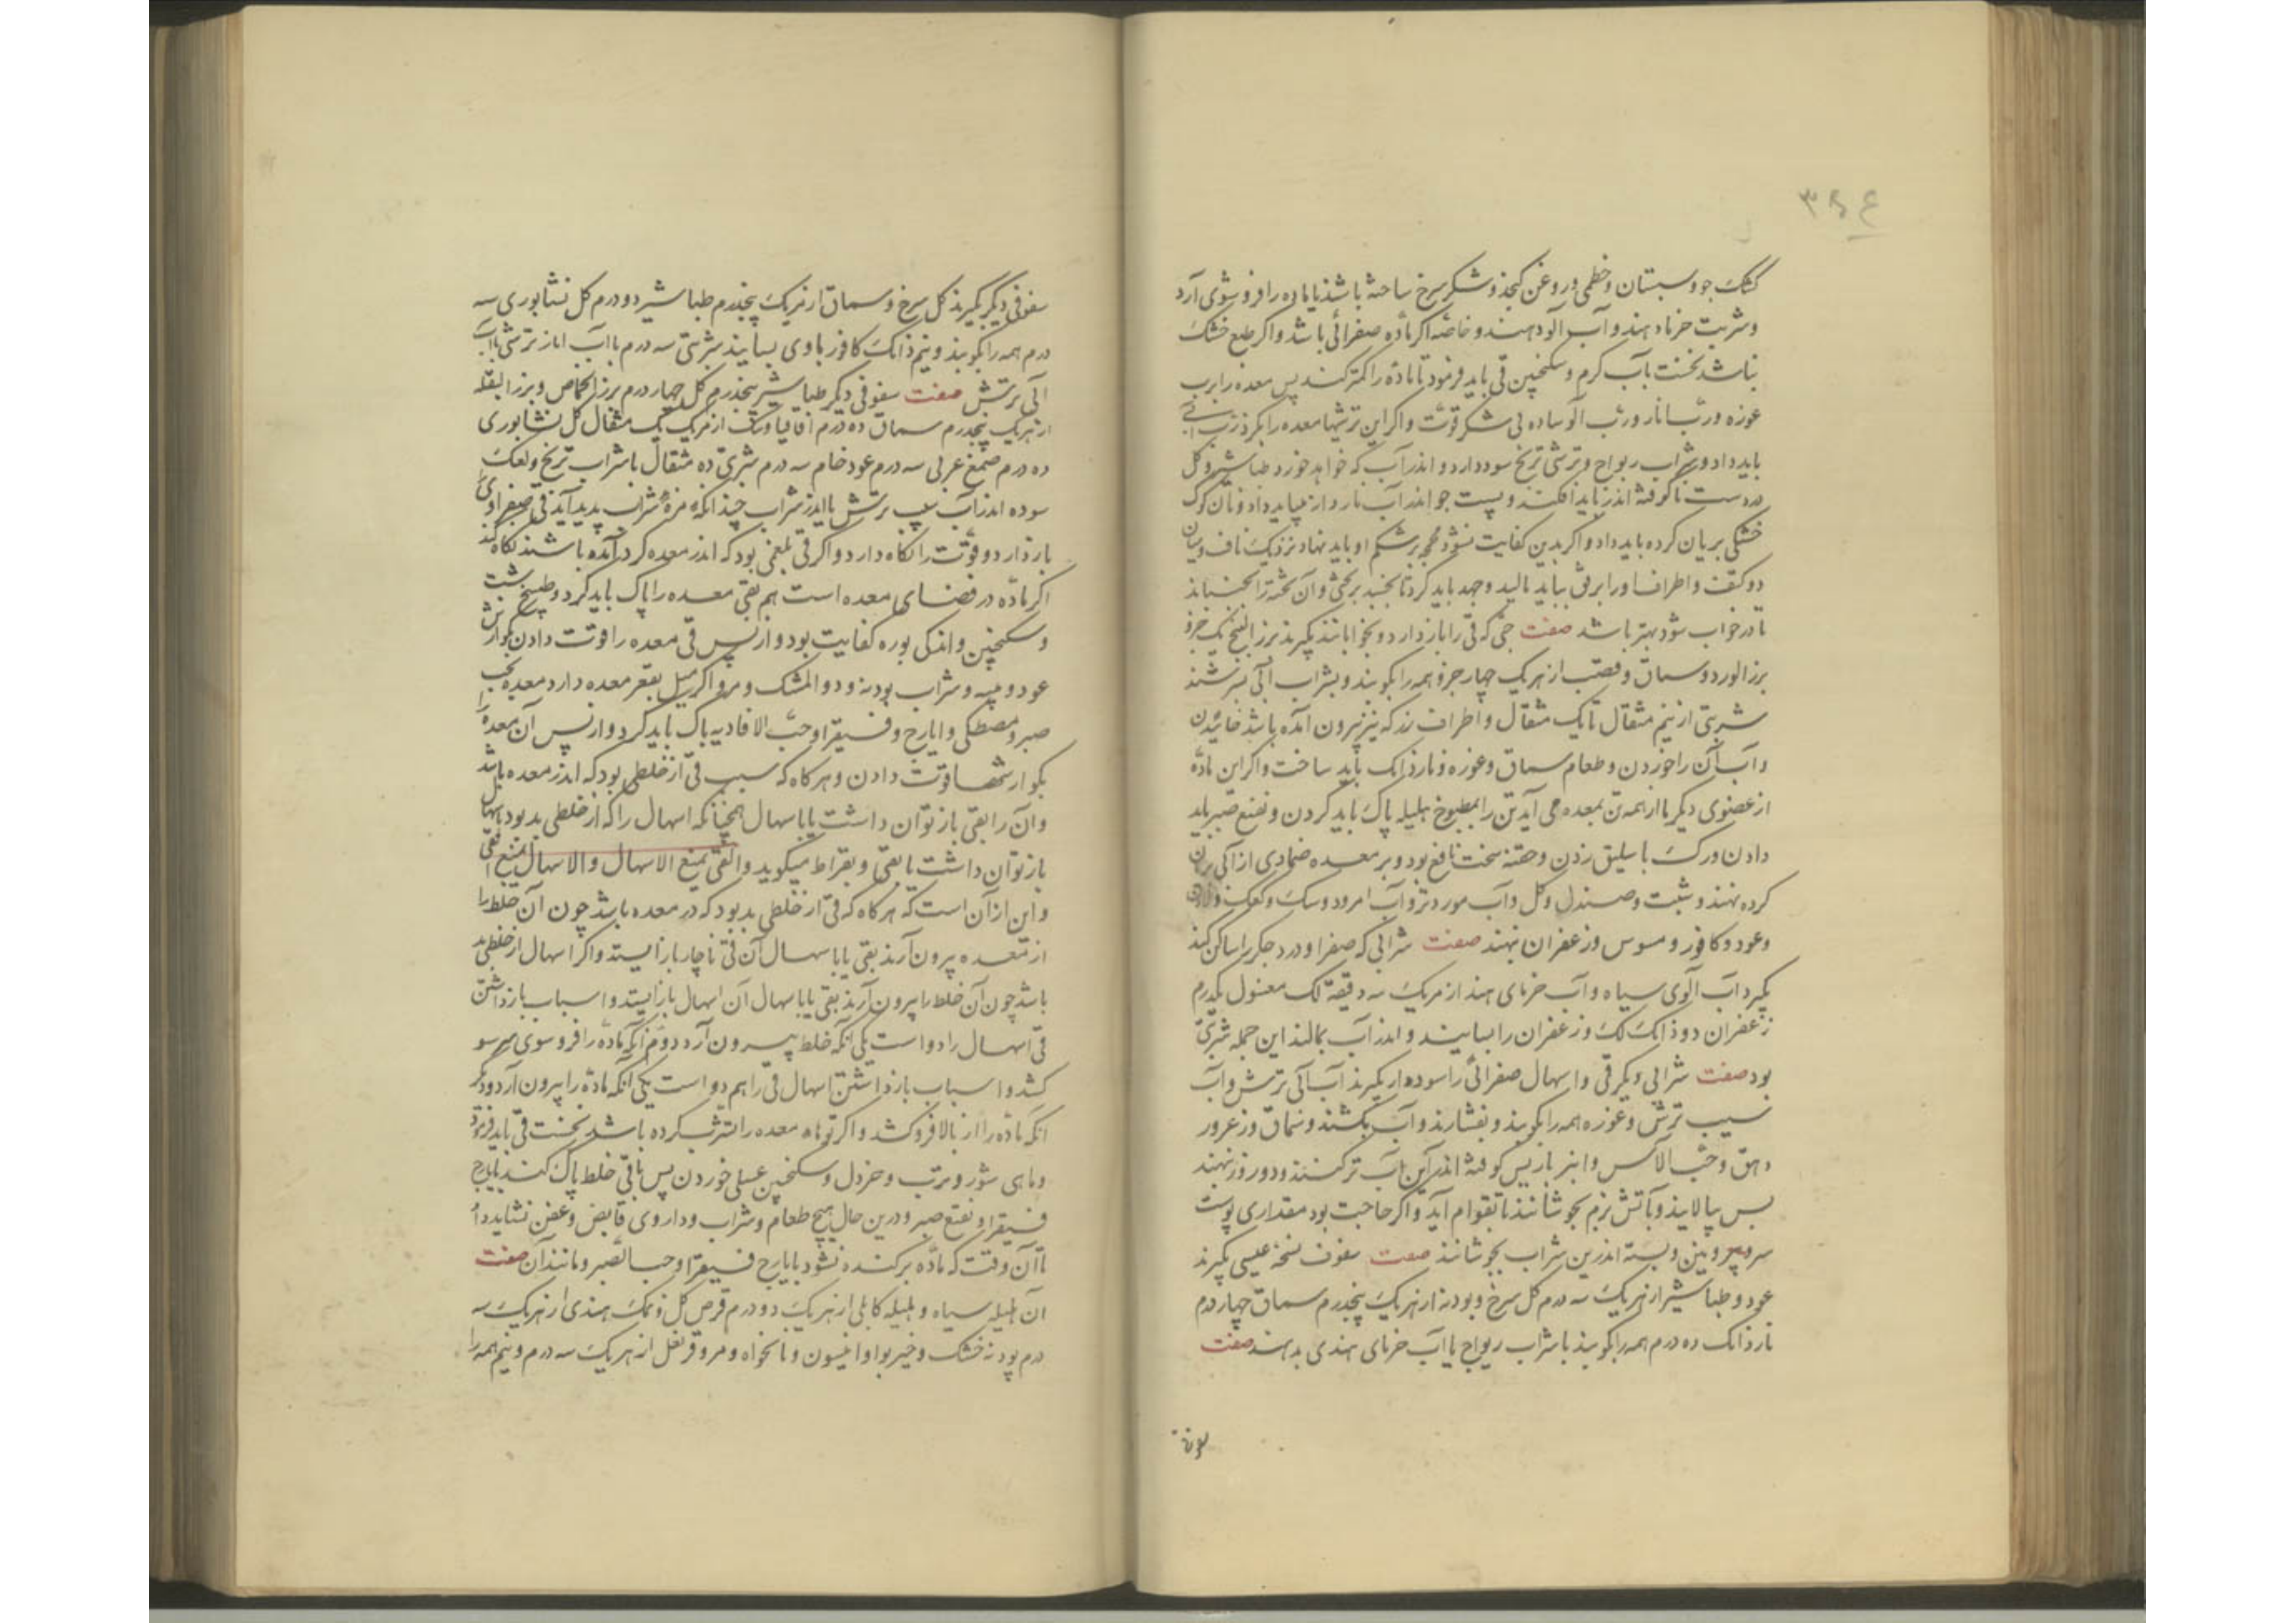 ۳۶۴
کشک جو و سبستان و خطمی و روغن کنجد و شکر سرخ ساخته باشند یا ماده را فروسوی آرد
و شربت خرما دهند و آب آلو دهند و خاصه اکر ماده صفرائی باشد و اکر طبع خشک
نباشد نخست بآب کرم و سکنجبین قی باید فرمود تا ماده را کمتر کند پس معده را برب
غوره و رب انار و رب آلو ساده بی شکر قوت و اکر این ترشیها معده را بکزد رب
باید داد و شراب ریواج و ترشی ترنج سود دارد و اندر آب که خواهد خورد طباشیر و کل
درست ناکوفته اندر باید افکند و پست جو اندر آب ناردان میباید داد و نان کوک
خشکی بریان کرده باید داد و اکر بدین کفایت نشود محجمه بر شکم او باید نهاد نزدیک ناف و میان
دو کتف و اطراف او را برفق بباید مالید و جهد باید کرد تا بخسبد بر تختی و آن تخته را بجنبانند
تا در خواب شود بهتر باشد صفت حبی که قی را باز دارد و بخواباند بکیرند بزر البنج یک جزو
بزر الورد و سماق و قصب از هریک چهار جزو همه را بکوبند و بشراب آبی بسرشند
شربتی از نیم مثقال تا یک مثقال و اطراف رز که نیز بیرون آمده باشد خائیدن
و آب آن را خوردن و طعام سماق و غوره و ناردانک باید ساخت و اکر این ماده
از عضوی دیکر یا از همه تن بمعده می آید تن را بمطبوخ هلیله پاک باید کردن و نقیع صبر باید
دادن و رک باسلیق زدن و حقنه سخت نافع بود و بر معده ضمادی از آبی بریان
کرده نهند و شبت و صندل و کل و آب مورد تر و آب امرود و سک و کعک و
و عود و کافور و سوس و زعفران نهند صفت شرابی که صفرا و درد جکر را ساکن کند
بکیرد آب آلوی سیاه و آب خرمای هند از هریک سه وقیه لک مغسول یکدرم
زعفران دو دانک لک و زعفران را بسایند و اندر آب بمالند این جمله شربتی
بود صفت شرابی دیکر قی و اسهال صفرائی را سود دارد بکیرند آب آبی ترش و آب
سیب ترش و غوره همه را بکوبند و بفشارند و آب بکشند و سماق و زعرور
و نبق و حب الآس و انبرباریس کوفته اندر این آب تر کنند و دو روز بنهند
پس بپالایند و بآتش نرم بجوشانند تا بقوام آید و اکر حاجت بود مقداری پوست
بیرونین و پسته اندرین شراب بجوشانند صفت سفوف نسخه عیسی بکیرند
عود و طباشیر از هریک سه درم کل سرخ و پودنه از هریک پنجدرم سماق چهار درم
ناردانک ده درم همه را بکوبند با شراب ریواج یا آب خرمای هندی بدهند صفت
سفوفی دیکر بکیرند کل سرخ و سماق از هریک پنجدرم طباشیر دو درم کل نشابوری سه
درم همه را بکوبند و نیم دانک کافور با وی بسایند شربتی سه درم با آب انار ترش یا آب
آبی ترش صفت سفوفی دیکر طباشیر پنجدرم کل چهار درم بزر الحماض و بزر البقله
از هریک پنجدرم سماق ده درم اقاقیا و سک از هریک یک مثقال کل نشابوری
ده درم صمغ عربی سه درم عود خام سه درم شربتی ده مثقال با شراب ترنج و کعک
سوده اندر آب سیب ترش یا اندر شراب چندانکه مزه شراب پدید آید قی صفراوی
باز دارد و قوت را نکاه دارد و اکر قی بلغمی بود که اندر معده کرد آمده باشد نکاه کند
اکر ماده در فضای معده است هم بقی معده را پاک باید کرد و طبیخ شبت
و سکنجبین و اندکی بوره کفایت بود و از پس قی معده را قوت دادن بکوارش
عود و میبه و شراب پودنه و دواء المشک و مرو اکر میل بقعر معده دارد معده بحب
صبر و مصطکی و ایارج فیقرا و حب الافاویه پاک باید کرد و از پس آن معده را
بکوارشها قوت دادن و هرکاه که سبب قی از خلطی بود که اندر معده باشد
و آن را بقی باز توان داشت یا باسهال همچنانکه اسهال را که از خلطی بد بود باسهال
باز توان داشت یا بقی و بقراط میکوید والقی یمنع الاسهال والاسهال یمنع القی
و این از آن است که هرکاه که قی از خلطی بد بود که در معده باشد چون آن خلط را
از معده بیرون آرند بقی یا باسهال آن قی ناچار باز ایستد و اکر اسهال از خلطی بد
باشد چون آن خلط را بیرون آرند بقی یا باسهال آن اسهال باز ایستد و اسباب باز داشتن
قی اسهال را دو است یکی آنکه خلط بیرون آرد دوم آنکه ماده را فروسوی بر سو
کشد و اسباب باز داشتن اسهال قی را هم دو است یکی آنکه ماده را بیرون آرد و دیکر
آنکه ماده را از بالا فرو کشد و اکر معده را تشرب کرده باشد نخست قی باید فرمود
و ماهی شور و ترب و خردل و سکنجبین عسلی خوردن پس باقی خلط پاک کنند بایارج
فیقرا و نقیع صبر و درین حال هیچ طعام و شراب و داروی قابض و عفص نشاید داد
تا آن وقت که ماده برکنده نشود بایارج فیقرا و حب الصبر و مانند آن صفت
آن هلیله سیاه و بلیله کابلی از هریک دو درم قرص کل و نمک هندی از هریک سه
درم پودنه خشک و خیربوا و انیسون و نانخواه و مرو و قرنفل از هریک سه درم و نیم همه را